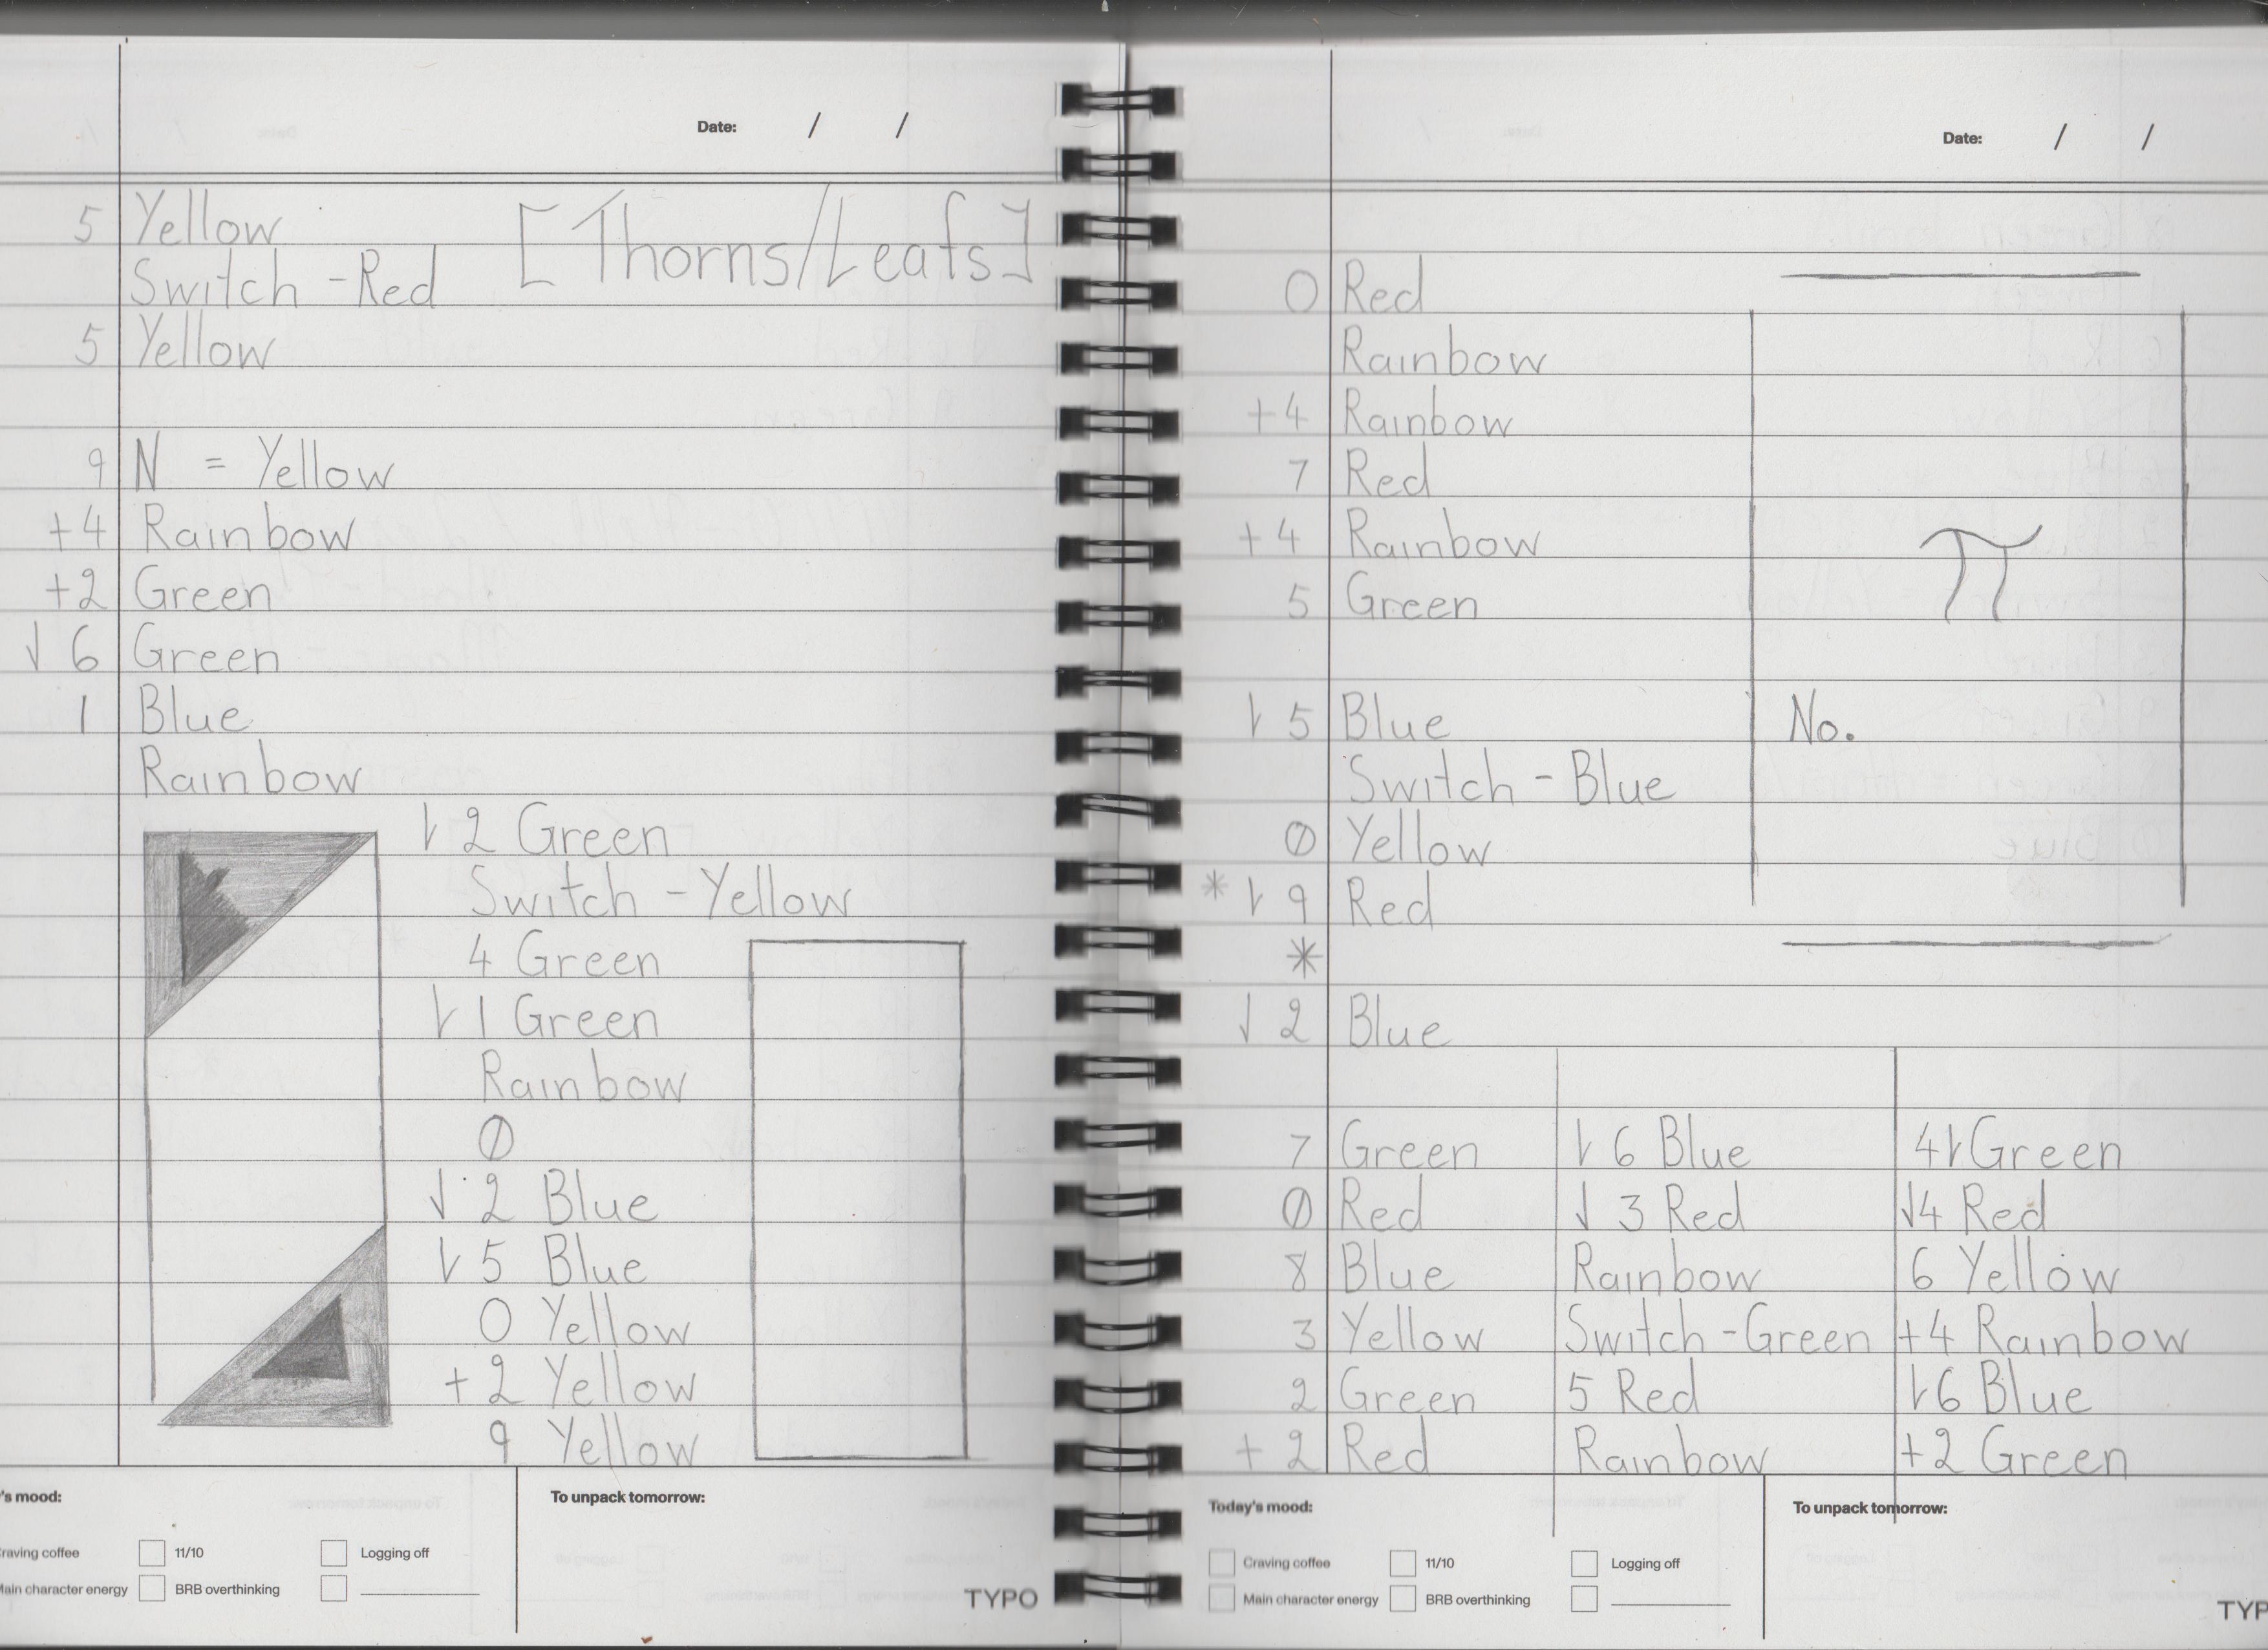 Date: / /
5 Yellow [Thorns/Leafs]
Switch - Red
5 Yellow
9 N = Yellow
+4 Rainbow
+2 Green
↓ 6 Green
1 Blue
Rainbow
↓ 2 Green
Switch - Yellow
4 Green
↓ 1 Green
Rainbow
Ø
↓ 2 Blue
↓ 5 Blue
0 Yellow
+2 Yellow
9 Yellow
's mood:
To unpack tomorrow:
raving coffee 11/10 Logging off
Main character energy BRB overthinking
TYPO
Date: / /
0 Red
Rainbow
+4 Rainbow
7 Red
+4 Rainbow
5 Green
π
↓ 5 Blue
No.
Switch - Blue
Ø Yellow
* ↓ 9 Red
*
↓ 2 Blue
7 Green ↓ 6 Blue 4↓ Green
Ø Red ↓ 3 Red ↓4 Red
8 Blue Rainbow 6 Yellow
3 Yellow Switch - Green +4 Rainbow
2 Green 5 Red ↓6 Blue
+2 Red Rainbow +2 Green
Today's mood:
To unpack tomorrow:
Craving coffee 11/10 Logging off
Main character energy BRB overthinking
TYP